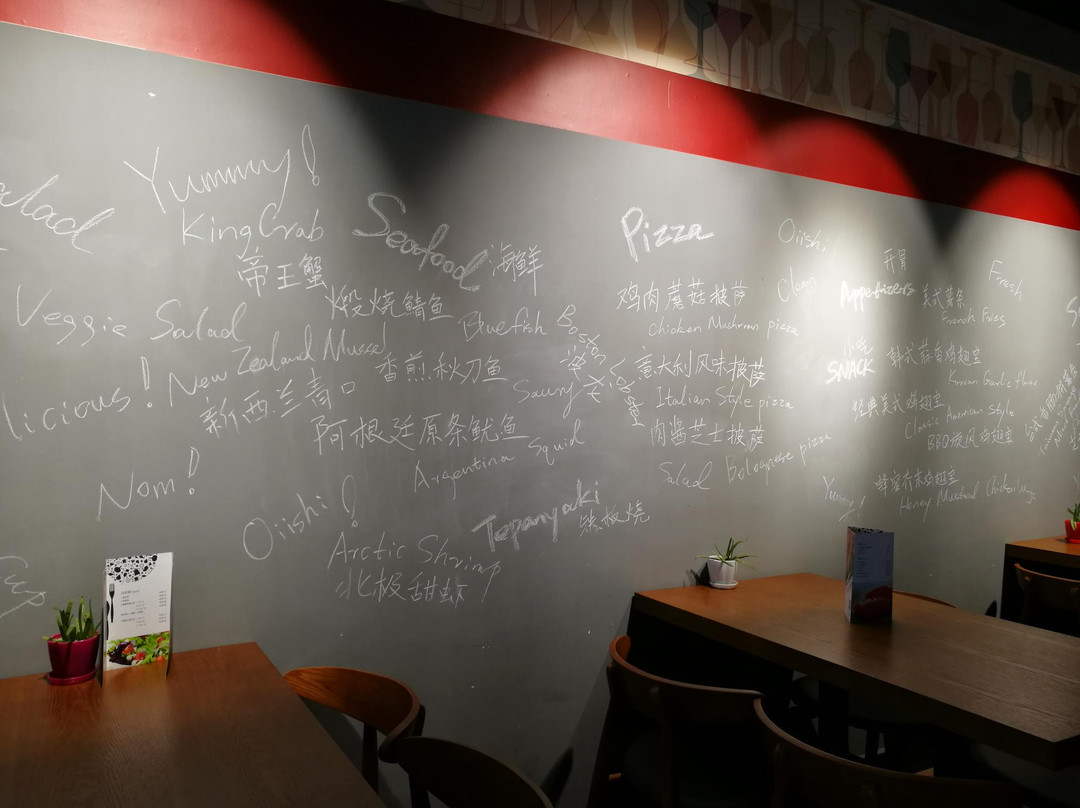 Salad
Yummy!
King Crab
帝王蟹
Seafood 海鲜
煅烧鲭鱼
Bluefish
Veggie Salad
New Zealand Mussel
新西兰青口
香煎秋刀鱼
Saury
Boston
Lobster
licious!
阿根廷原条鱿鱼
Argentina Squid
Nom!
Oiishi!
Tepanyaki 铁板烧
Arctic Shrimp
北极甜虾
Pizza
鸡肉蘑菇披萨
Chicken Mushroom pizza
意大利风味披萨
Italian Style pizza
肉酱芝士披萨
Bolognese pizza
Salad
Oiishi!
Clean
开胃
Appetizers 美式薯条
French Fries
Fresh
小吃
SNACK
韩式蒜香鸡翅
Korean Garlic
经典美式鸡翅
Classic American Style
BBQ旋风鸡翅
Yummy!
蜂蜜芥末鸡翅
Honey Mustard